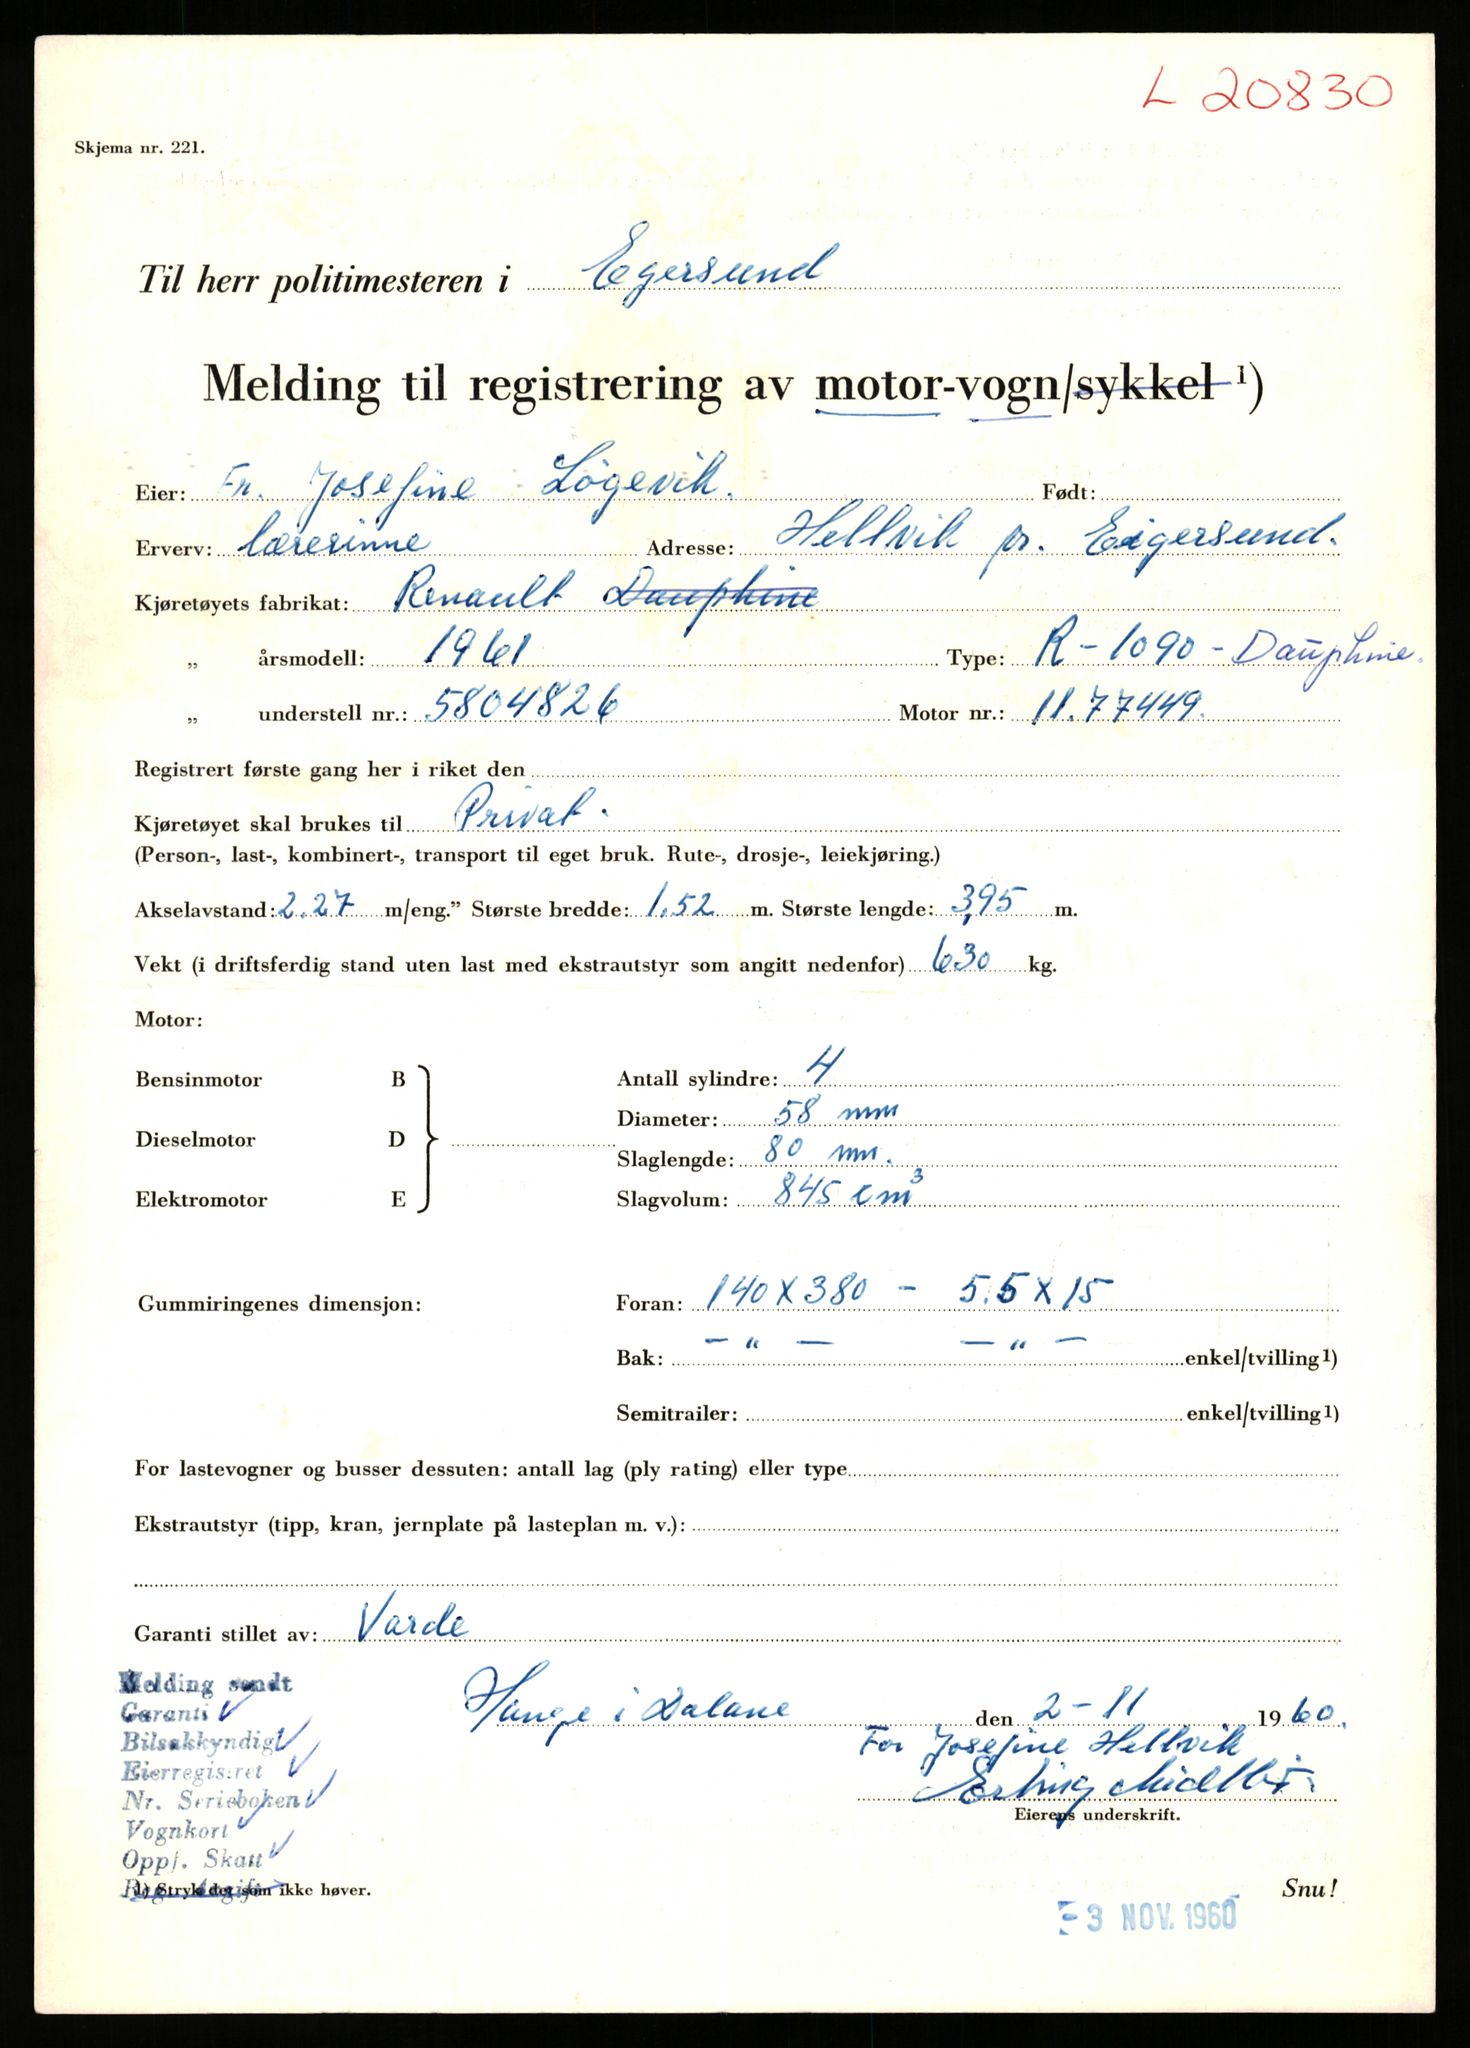 L 20830
Skjema nr. 221.
Til herr politimesteren i Egersund
Melding til registrering av motor-vogn/sykkel 1)
Eier: Fr. Josefine Løgevik. Født:
Erverv: lærerinne Adresse: Hellvik pr. Eigersund.
Kjøretøyets fabrikat: Renault Dauphine
„ årsmodell: 1961 Type: R-1090 - Dauphine.
„ understell nr.: 5804826 Motor nr.: 11.77449.
Registrert første gang her i riket den
Kjøretøyet skal brukes til Privat.
(Person-, last-, kombinert-, transport til eget bruk. Rute-, drosje-, leiekjøring.)
Akselavstand: 2.27 m/eng.” Største bredde: 1.52 m. Største lengde: 3,95 m.
Vekt (i driftsferdig stand uten last med ekstrautstyr som angitt nedenfor) 630 kg.
Motor:
Bensinmotor B Antall sylindre: 4
Diameter: 58 mm
Dieselmotor D
Slaglengde: 80 mm.
Elektromotor E Slagvolum: 845 cm³
Gummiringenes dimensjon: Foran: 140 X 380 - 5.5 X 15
Bak: — „ — — „ — enkel/tvilling 1)
Semitrailer: enkel/tvilling 1)
For lastevogner og busser dessuten: antall lag (ply rating) eller type
Ekstrautstyr (tipp, kran, jernplate på lasteplan m. v.):
Garanti stillet av: Varde
Melding sendt
Garanti
Hauge i Dalane den 2-11 1960.
Bilsakkyndig
For Josefine Hellvik
Eierregistret
Nr. Serieboken
Erling
Eierens underskrift.
Vognkort
Oppf. Skatt
Reg. Avgift
1) Stryk det som ikke høver.
Snu!
- 3 NOV. 1960